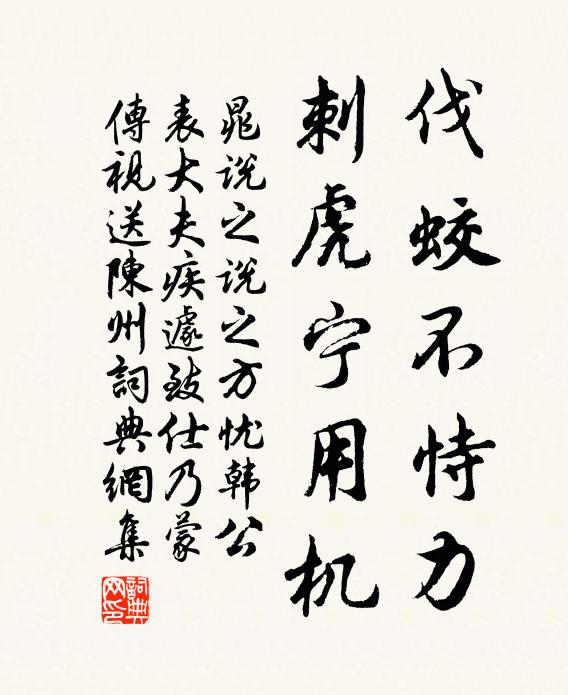 伐蛟不恃力
刺虎宁用机
晁说之说之方忧韩公
表大夫疾遽致仕乃蒙
傳視送陳州詞典網集
詞典
网印